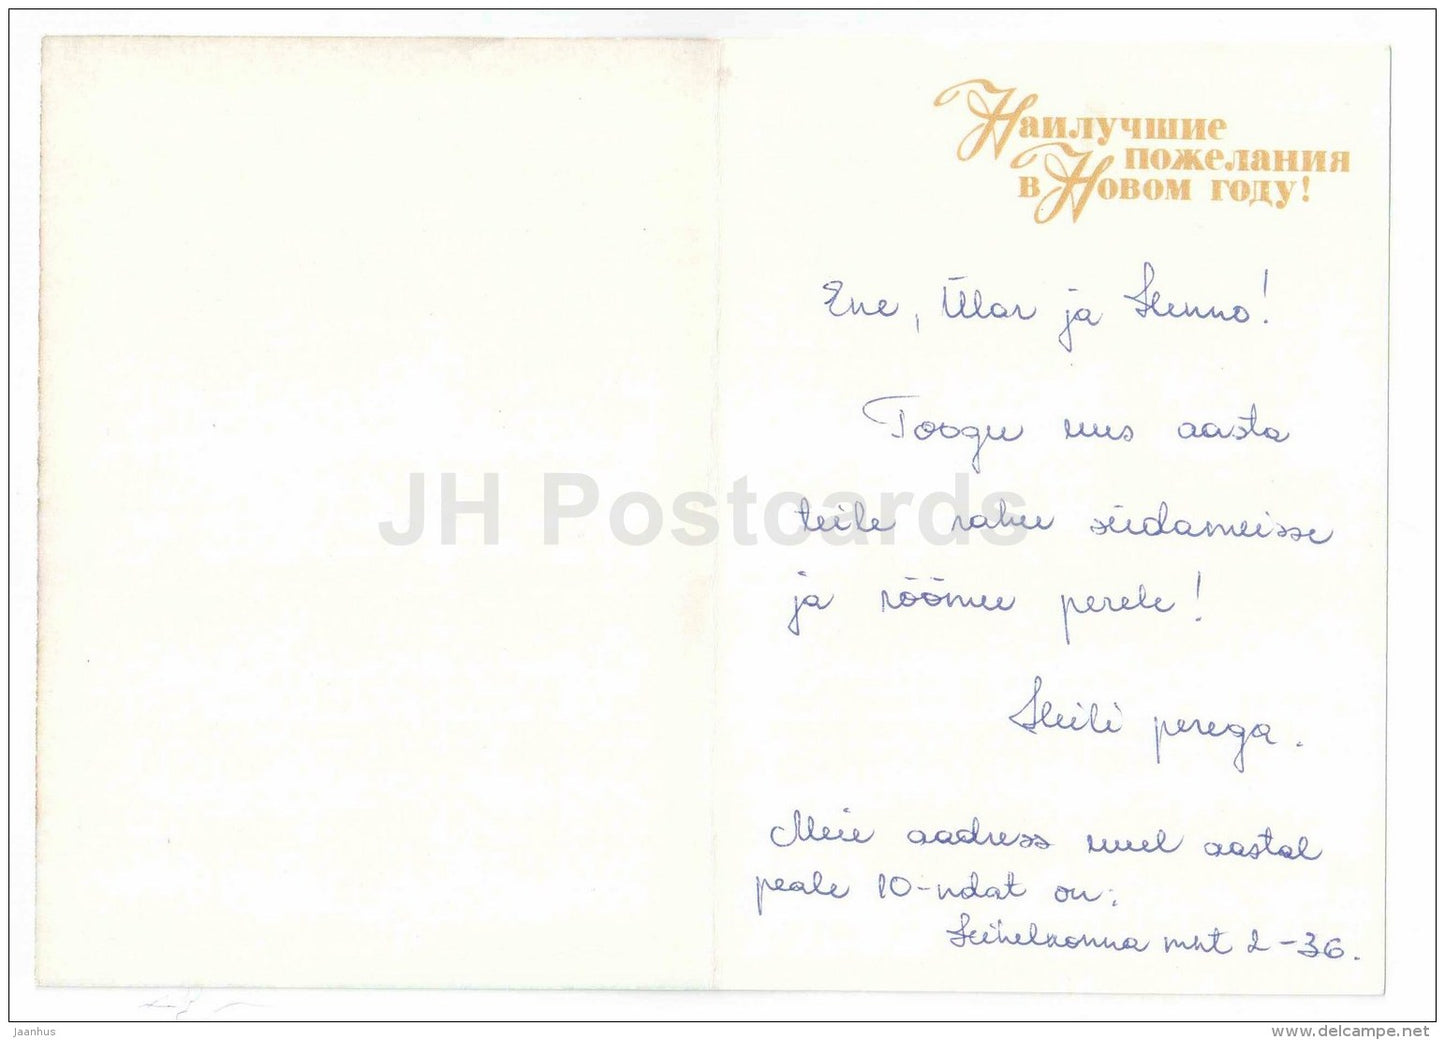 Наилучшие
пожелания
в Новом году!
Ene, Ülar ja Henno!
Toogu uus aasta
teile rahu südameisse
ja rõõmu perele!
Heili perega.
Meie aadress uuel aastal
peale 10-ndat on:
Kihelkonna mnt 2-36.
JH Postcards
Jaanhus
www.delcampe.net